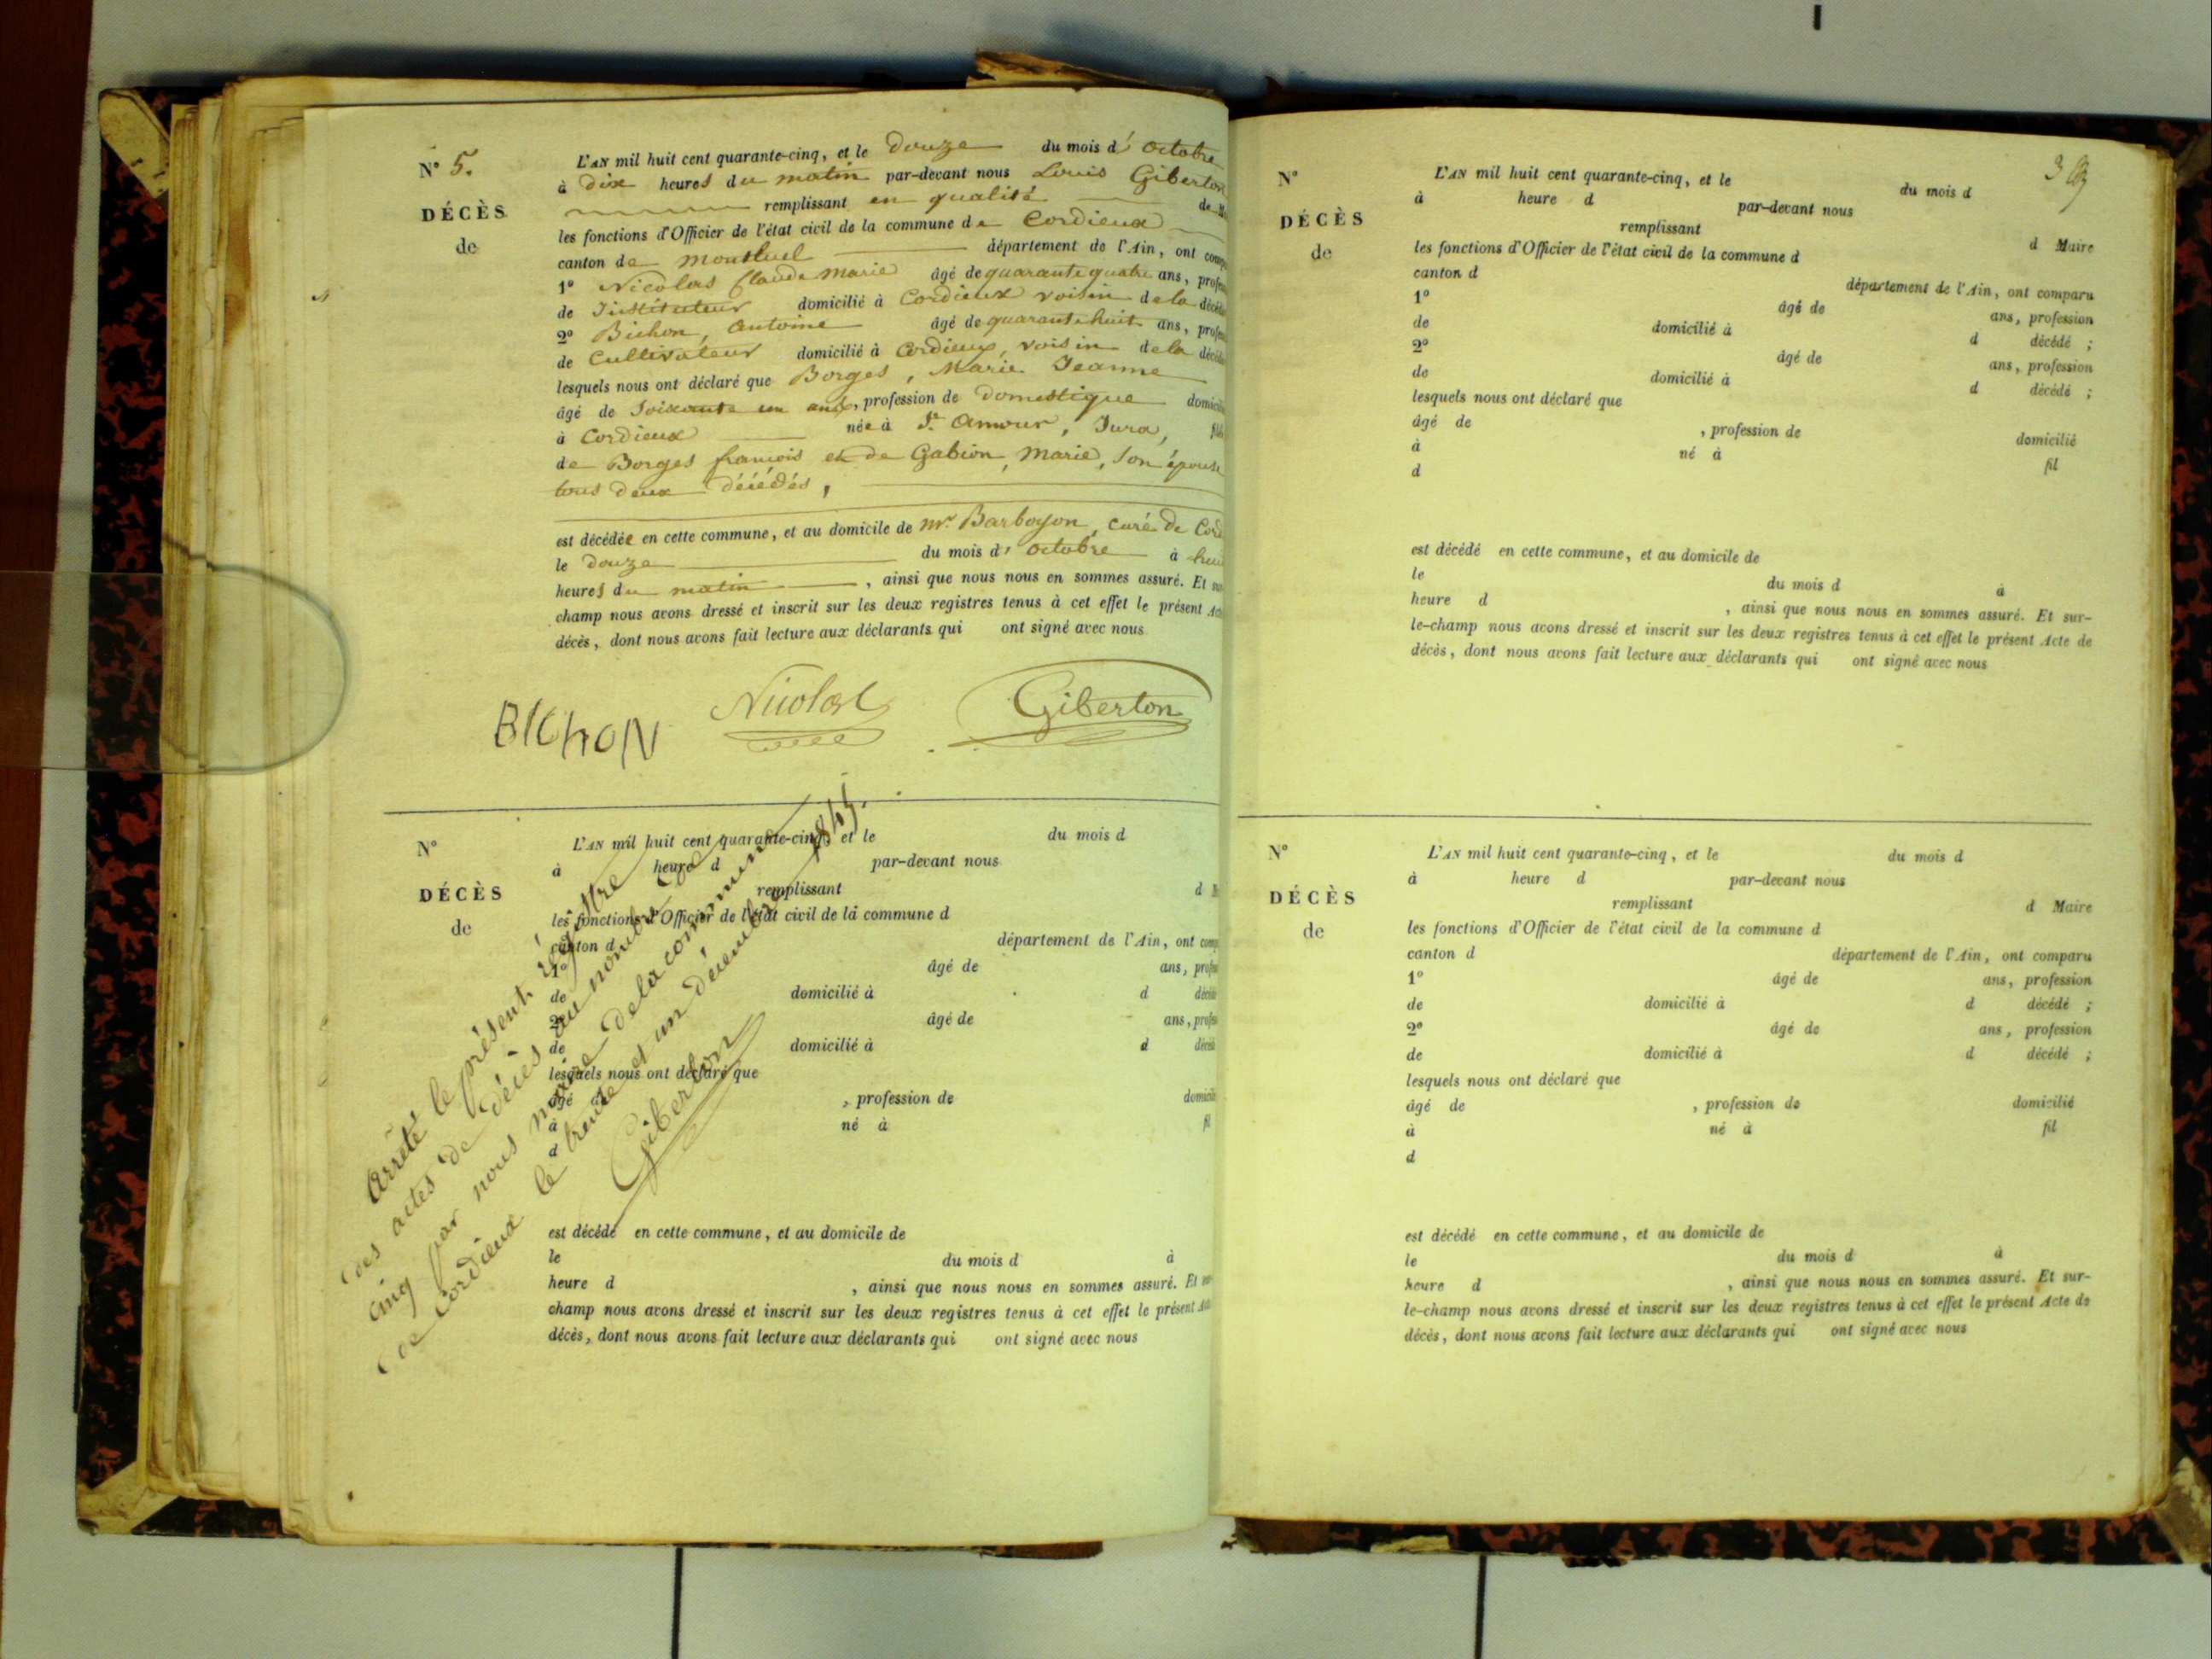 N° 5.
DÉCÈS
de
L'AN mil huit cent quarante-cinq, et le Douze du mois d'octobre
à Dix heures du matin par-devant nous Louis Giberton
remplissant en qualité de
les fonctions d'Officier de l'état civil de la commune de Cordieux
canton de montluel département de l'Ain, ont
1° Nicolas Claude marie âgé de quarante quatre ans,
de Instituteur domicilié à Cordieux voisin de la
2° Bichon, Antoine âgé de quarante huit ans,
de Cultivateur domicilié à Cordieux, voisin de la
lesquels nous ont déclaré que Borges, Marie Jeanne
âgé de Soixante un ans, profession de Domestique
à Cordieux née à St. Amour, Jura,
de Borges francois et de Gabion, Marie, son épouse
tous deux décédés,
est décédée en cette commune, et au domicile de mr. Barboyon, curé de
le Douze du mois d'octobre à
heures du matin, ainsi que nous nous en sommes assuré. Et
champ nous avons dressé et inscrit sur les deux registres tenus à cet effet le présent
décès, dont nous avons fait lecture aux déclarants qui ont signé avec nous
BIChON Nicolas Giberton
N°
DÉCÈS
de
L'AN mil huit cent quarante-cinq, et le du mois d
à heure d par-devant nous
remplissant d
les fonctions d'Officier de l'état civil de la commune d
canton d département de l'Ain, ont
1° âgé de ans,
de domicilié à d
2° âgé de ans,
de domicilié à d
lesquels nous ont déclaré que
âgé de , profession de
à né à
d
est décédé en cette commune, et au domicile de
le du mois d à
heure d , ainsi que nous nous en sommes assuré. Et
champ nous avons dressé et inscrit sur les deux registres tenus à cet effet le présent
décès, dont nous avons fait lecture aux déclarants qui ont signé avec nous
Arrêté le présent régistre
des actes de décès au nombre de
cinq par nous maire de la commune
de Cordieux le trente et un décembre 1845.
Giberton
N°
DÉCÈS
de
L'AN mil huit cent quarante-cinq, et le du mois d
à heure d par-devant nous
remplissant d Maire
les fonctions d'Officier de l'état civil de la commune d
canton d département de l'Ain, ont comparu
1° âgé de ans, profession
de domicilié à d décédé ;
2° âgé de ans, profession
de domicilié à d décédé ;
lesquels nous ont déclaré que
âgé de , profession de domicilié
à né à fil
d
est décédé en cette commune, et au domicile de
le du mois d à
heure d , ainsi que nous nous en sommes assuré. Et sur-
le-champ nous avons dressé et inscrit sur les deux registres tenus à cet effet le présent Acte de
décès, dont nous avons fait lecture aux déclarants qui ont signé avec nous
N°
DÉCÈS
de
L'AN mil huit cent quarante-cinq, et le du mois d
à heure d par-devant nous
remplissant d Maire
les fonctions d'Officier de l'état civil de la commune d
canton d département de l'Ain, ont comparu
1° âgé de ans, profession
de domicilié à d décédé ;
2° âgé de ans, profession
de domicilié à d décédé ;
lesquels nous ont déclaré que
âgé de , profession de domicilié
à né à fil
d
est décédé en cette commune, et au domicile de
le du mois d à
heure d , ainsi que nous nous en sommes assuré. Et sur-
le-champ nous avons dressé et inscrit sur les deux registres tenus à cet effet le présent Acte de
décès, dont nous avons fait lecture aux déclarants qui ont signé avec nous